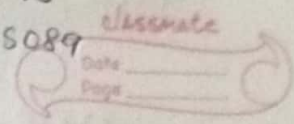 classmate
5089
Date
Page